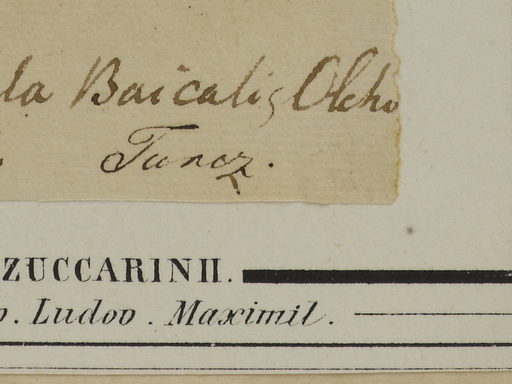 la Baïcali, Olcho
Turcz.
ZUCCARINII.
p. Ludov. Maximil.